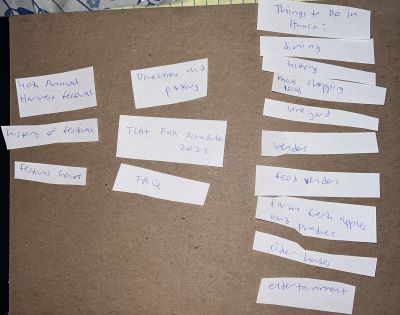 40th Annual
Harvest festival
history of festival
festival hours
Direction and
parking
TCAT Fall Schedule
2022
FAQ
Things to Do in
Ithaca:
dining
hiking
more shopping
local
vineyard
vender
food vender
farm fresh apples
and produce
cider houses
entertainment